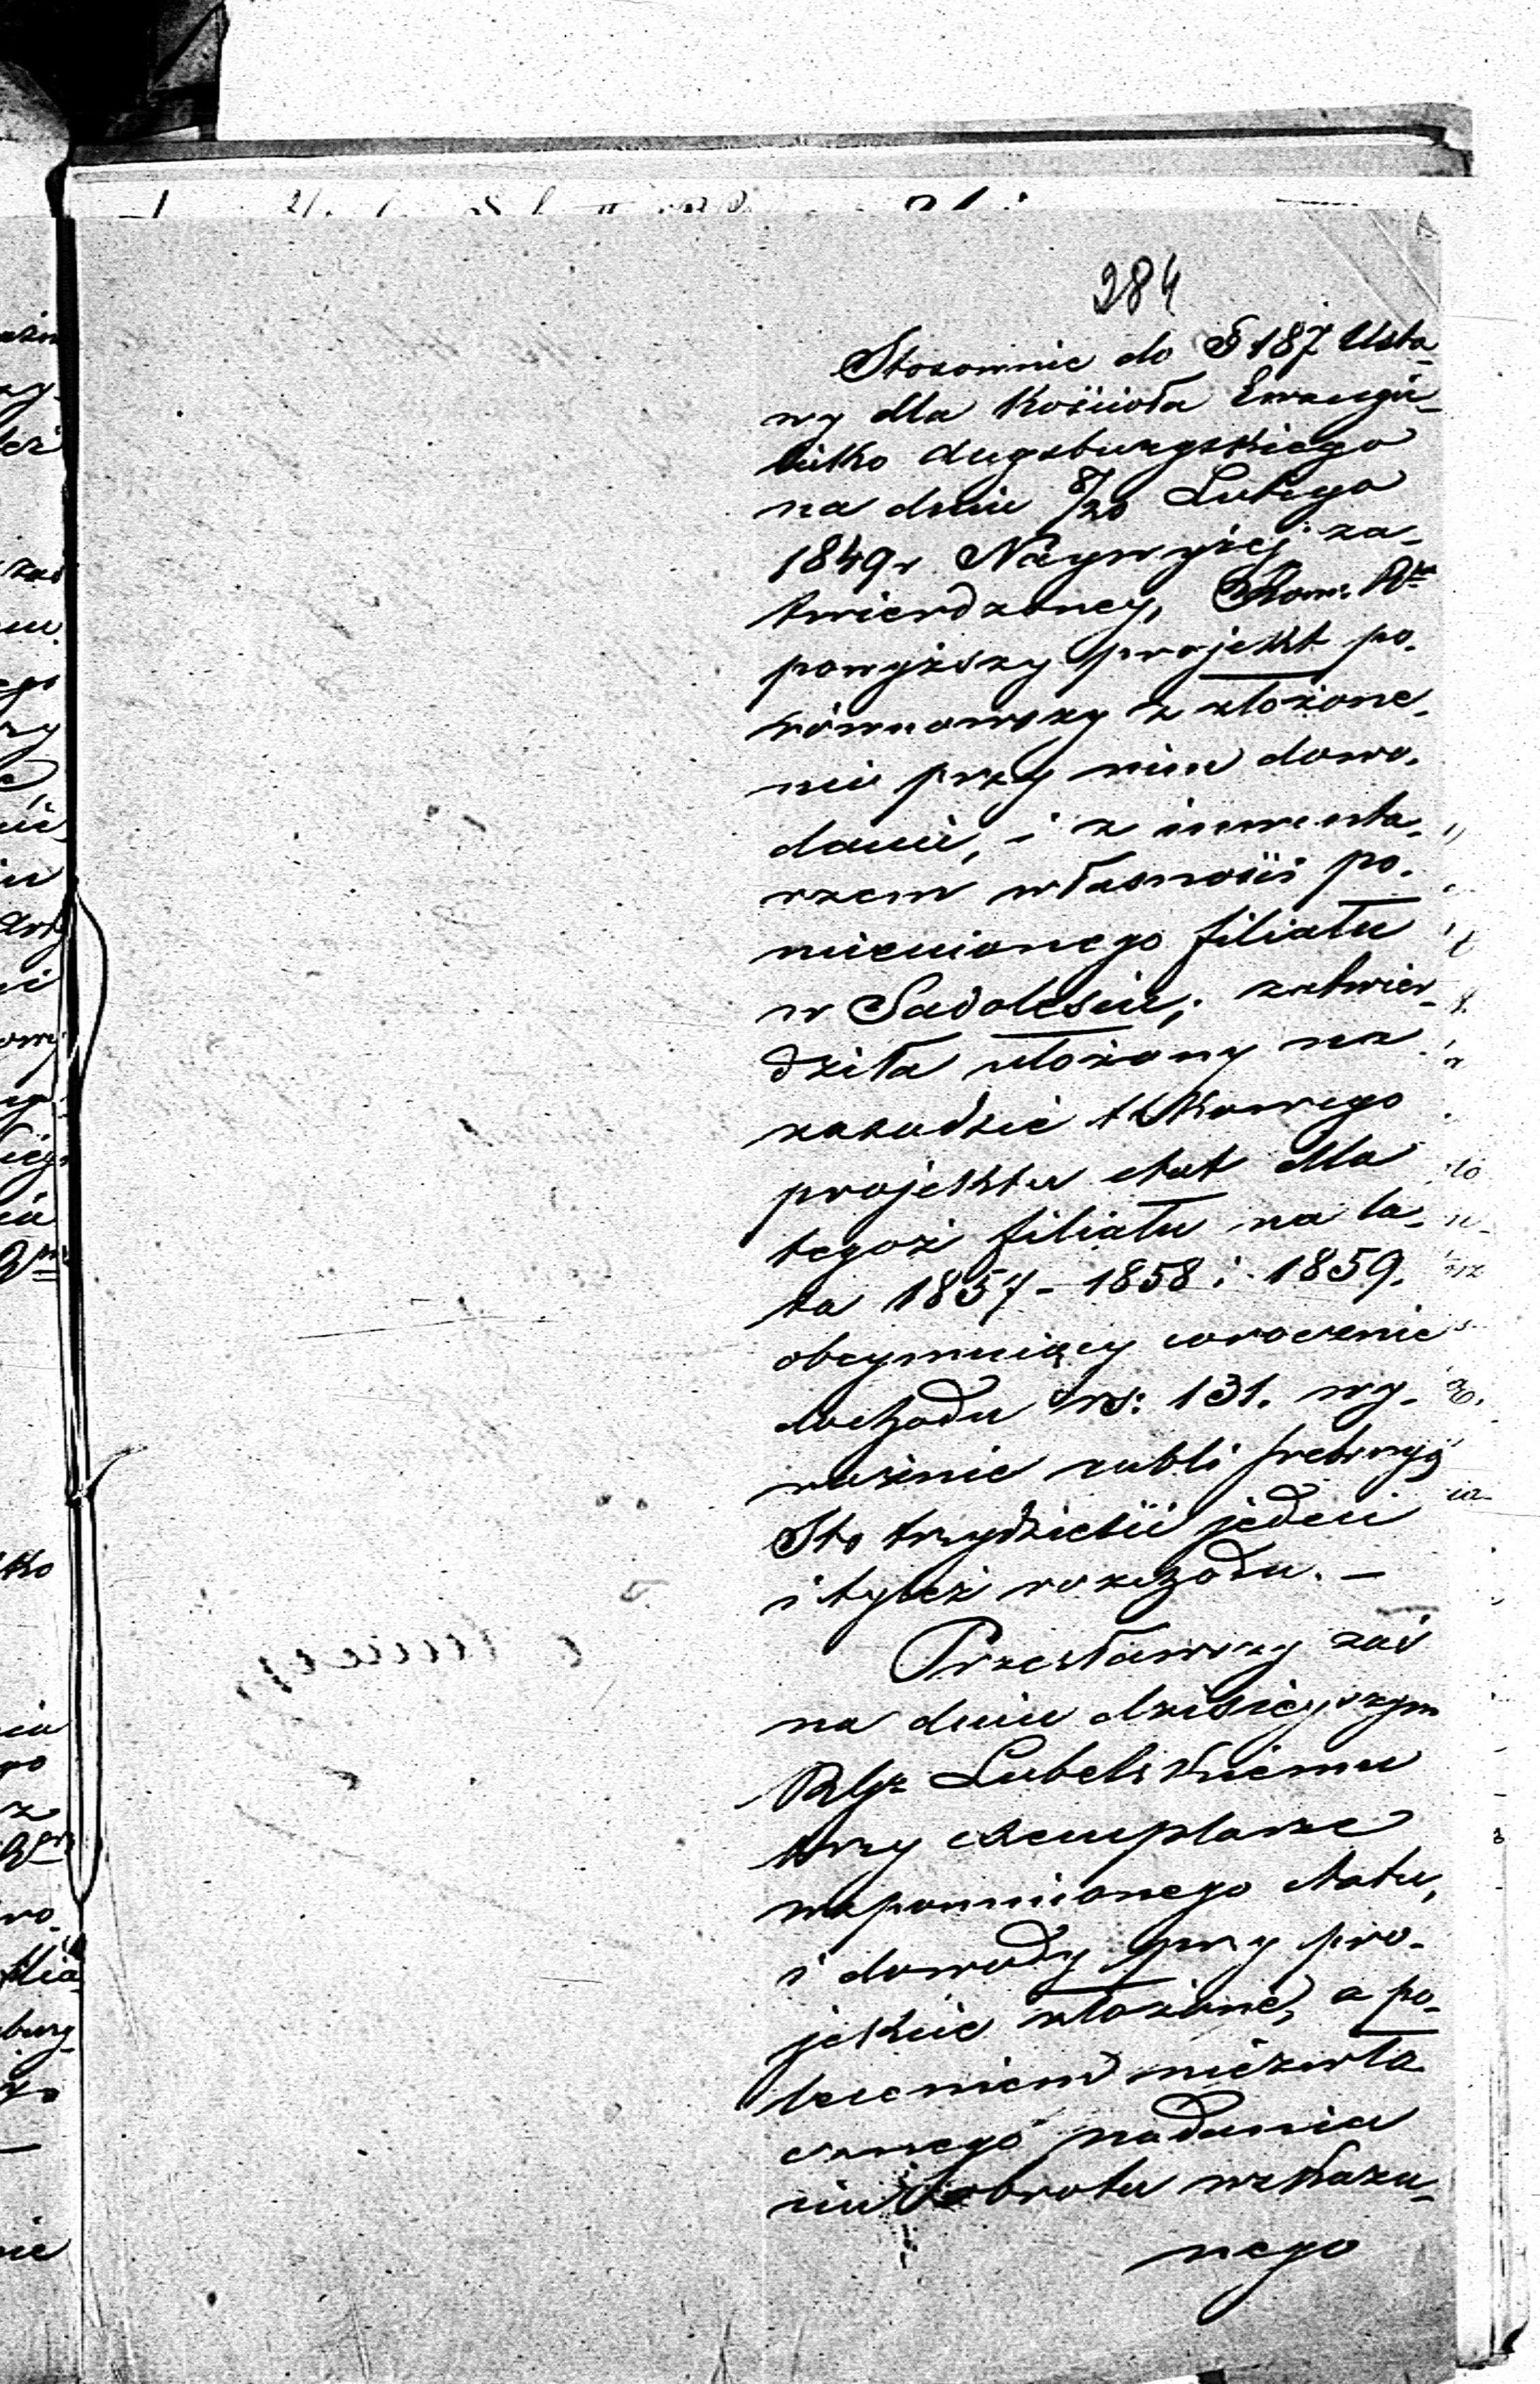 284
Stosownie do § 187 Usta_
wy dla Kościoła Ewangie_
licko Augsburgskiego
na dniu 8/20 Lutego
1849 r Naywyżej za_
twierdzoney, Kom: Rz
powyższy projekt po_
równawszy z złożone_
mi przy nim dowo_
dami, i z inwenta_
rzem własności po_
mienionego filiału
w Sadolesiu, zatwier_
dziła ułożony na
zasadzie takowego
projektu etat dla
tegoż filiału na la_
ta 1857 - 1858 i 1859.
obeymuiący corocznie
dochodu rs: 131. wy_
raźnie rubli srebrnych
Sto trzydzieści jeden
i tyleż rozchodu. —
Przesławszy zaś
na dniu dzisieyszym
Lubelskiemu
trzy exemplarze
wspomnionego etatu,
i dowody przy pro_
jekcie złożone, z po_
leceniem niezwło_
cznego nadania
im obrotu wskaza_
nego